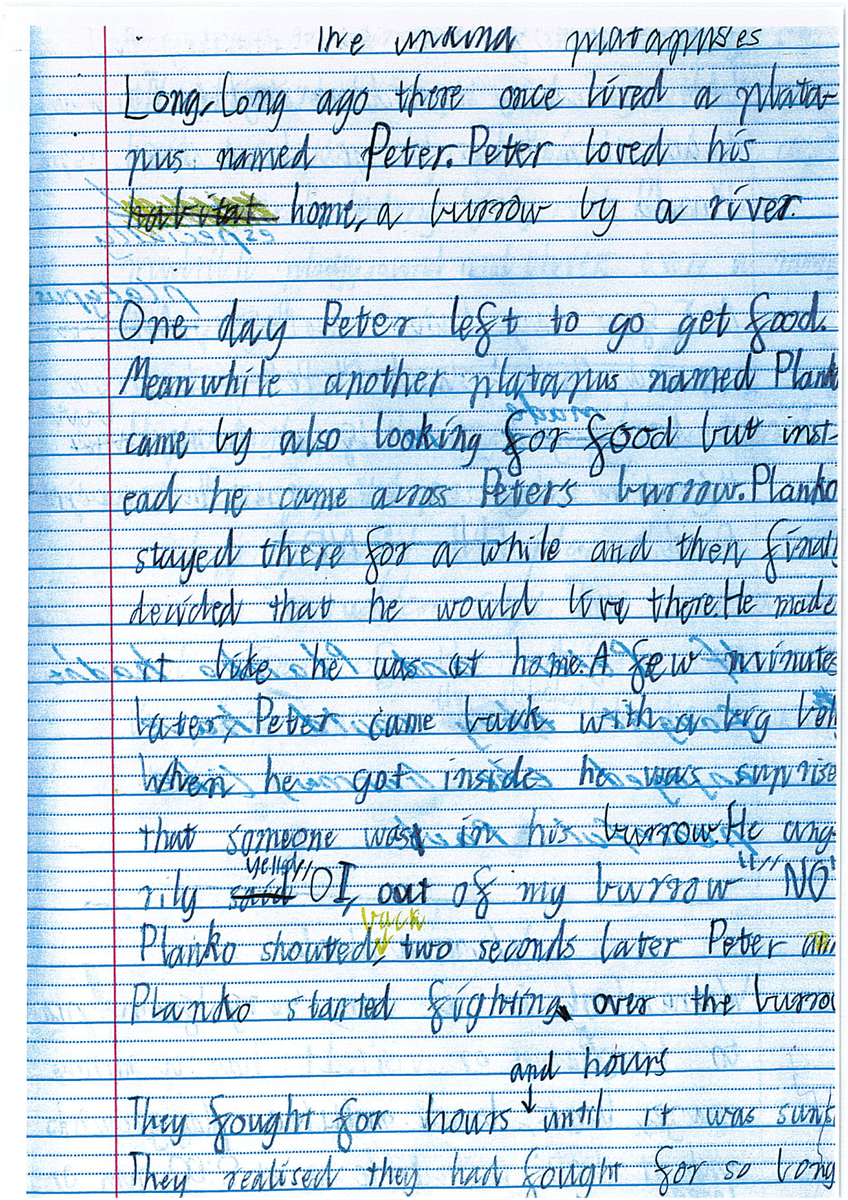 The unkind platapuses
Long, long ago there once lived a plata-
pus named Peter. Peter loved his
habitat home, a burrow by a river.
especially
platypus
One day Peter left to go get food.
Meanwhile another platapus named Plank
made
came by also looking for food but inst-
ead he came across Peter's burrow. Planko
stayed there for a while and then finall
decided that he would live there. He made
it like he was at home. A few minutes
later, Peter came back with a big
When he got inside he was suprise
that someone was in his burrow. He ang-
yelled
rily said "OI, out of my burrow" "NO"
back
Planko shouted, two seconds later Peter an
Planko started fighting over the burro
and hours
They fought for hours until it was suns
They realised they had fought for so long